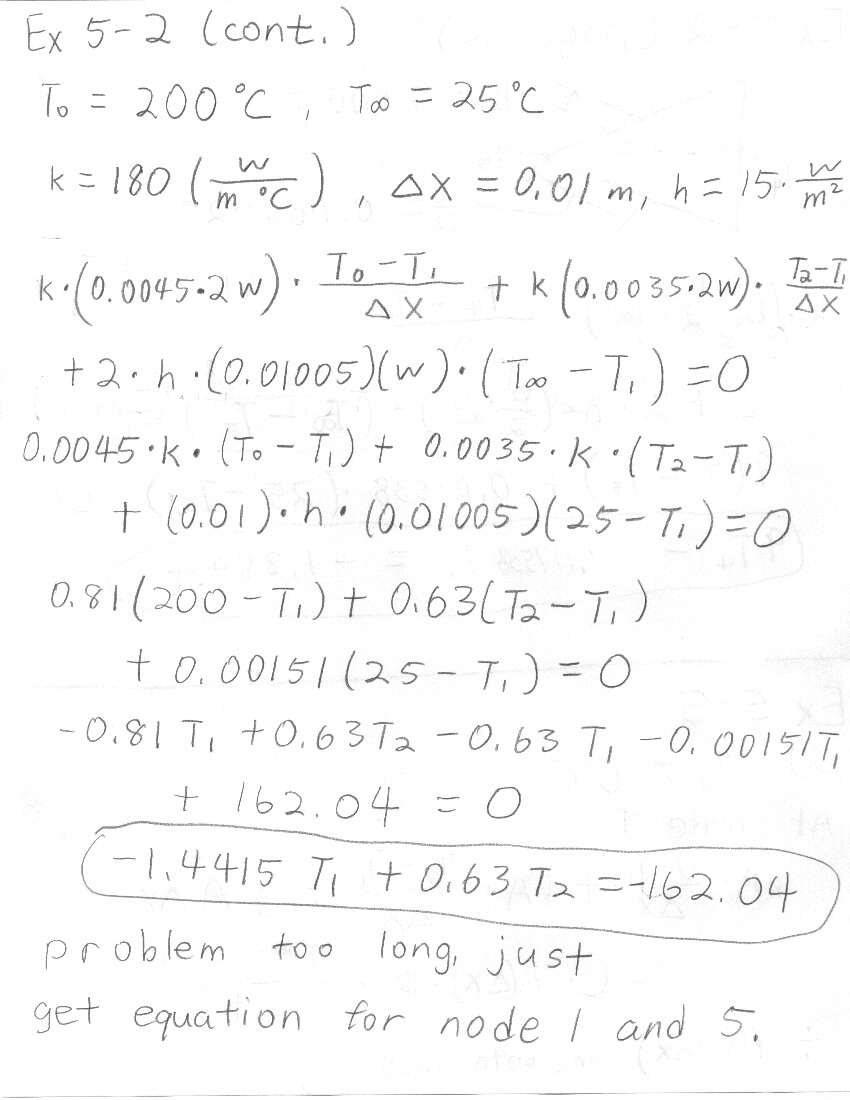 Ex 5-2 (cont.)
T₀ = 200 °C , T∞ = 25 °C
k = 180 (W/(m °C)) , ΔX = 0.01 m, h = 15 · W/m²
k·(0.0045·2w) · (T₀ - T₁)/ΔX + k(0.0035·2w) · (T₂-T₁)/ΔX
+ 2 · h · (0.01005)(w) · (T∞ - T₁) = 0
0.0045·k·(T₀ - T₁) + 0.0035·k·(T₂ - T₁)
+ (0.01)·h·(0.01005)(25 - T₁) = 0
0.81(200 - T₁) + 0.63(T₂ - T₁)
+ 0.00151(25 - T₁) = 0
-0.81 T₁ + 0.63T₂ - 0.63 T₁ - 0.00151T₁
+ 162.04 = 0
-1.4415 T₁ + 0.63 T₂ = -162.04
problem too long, just
get equation for node 1 and 5.